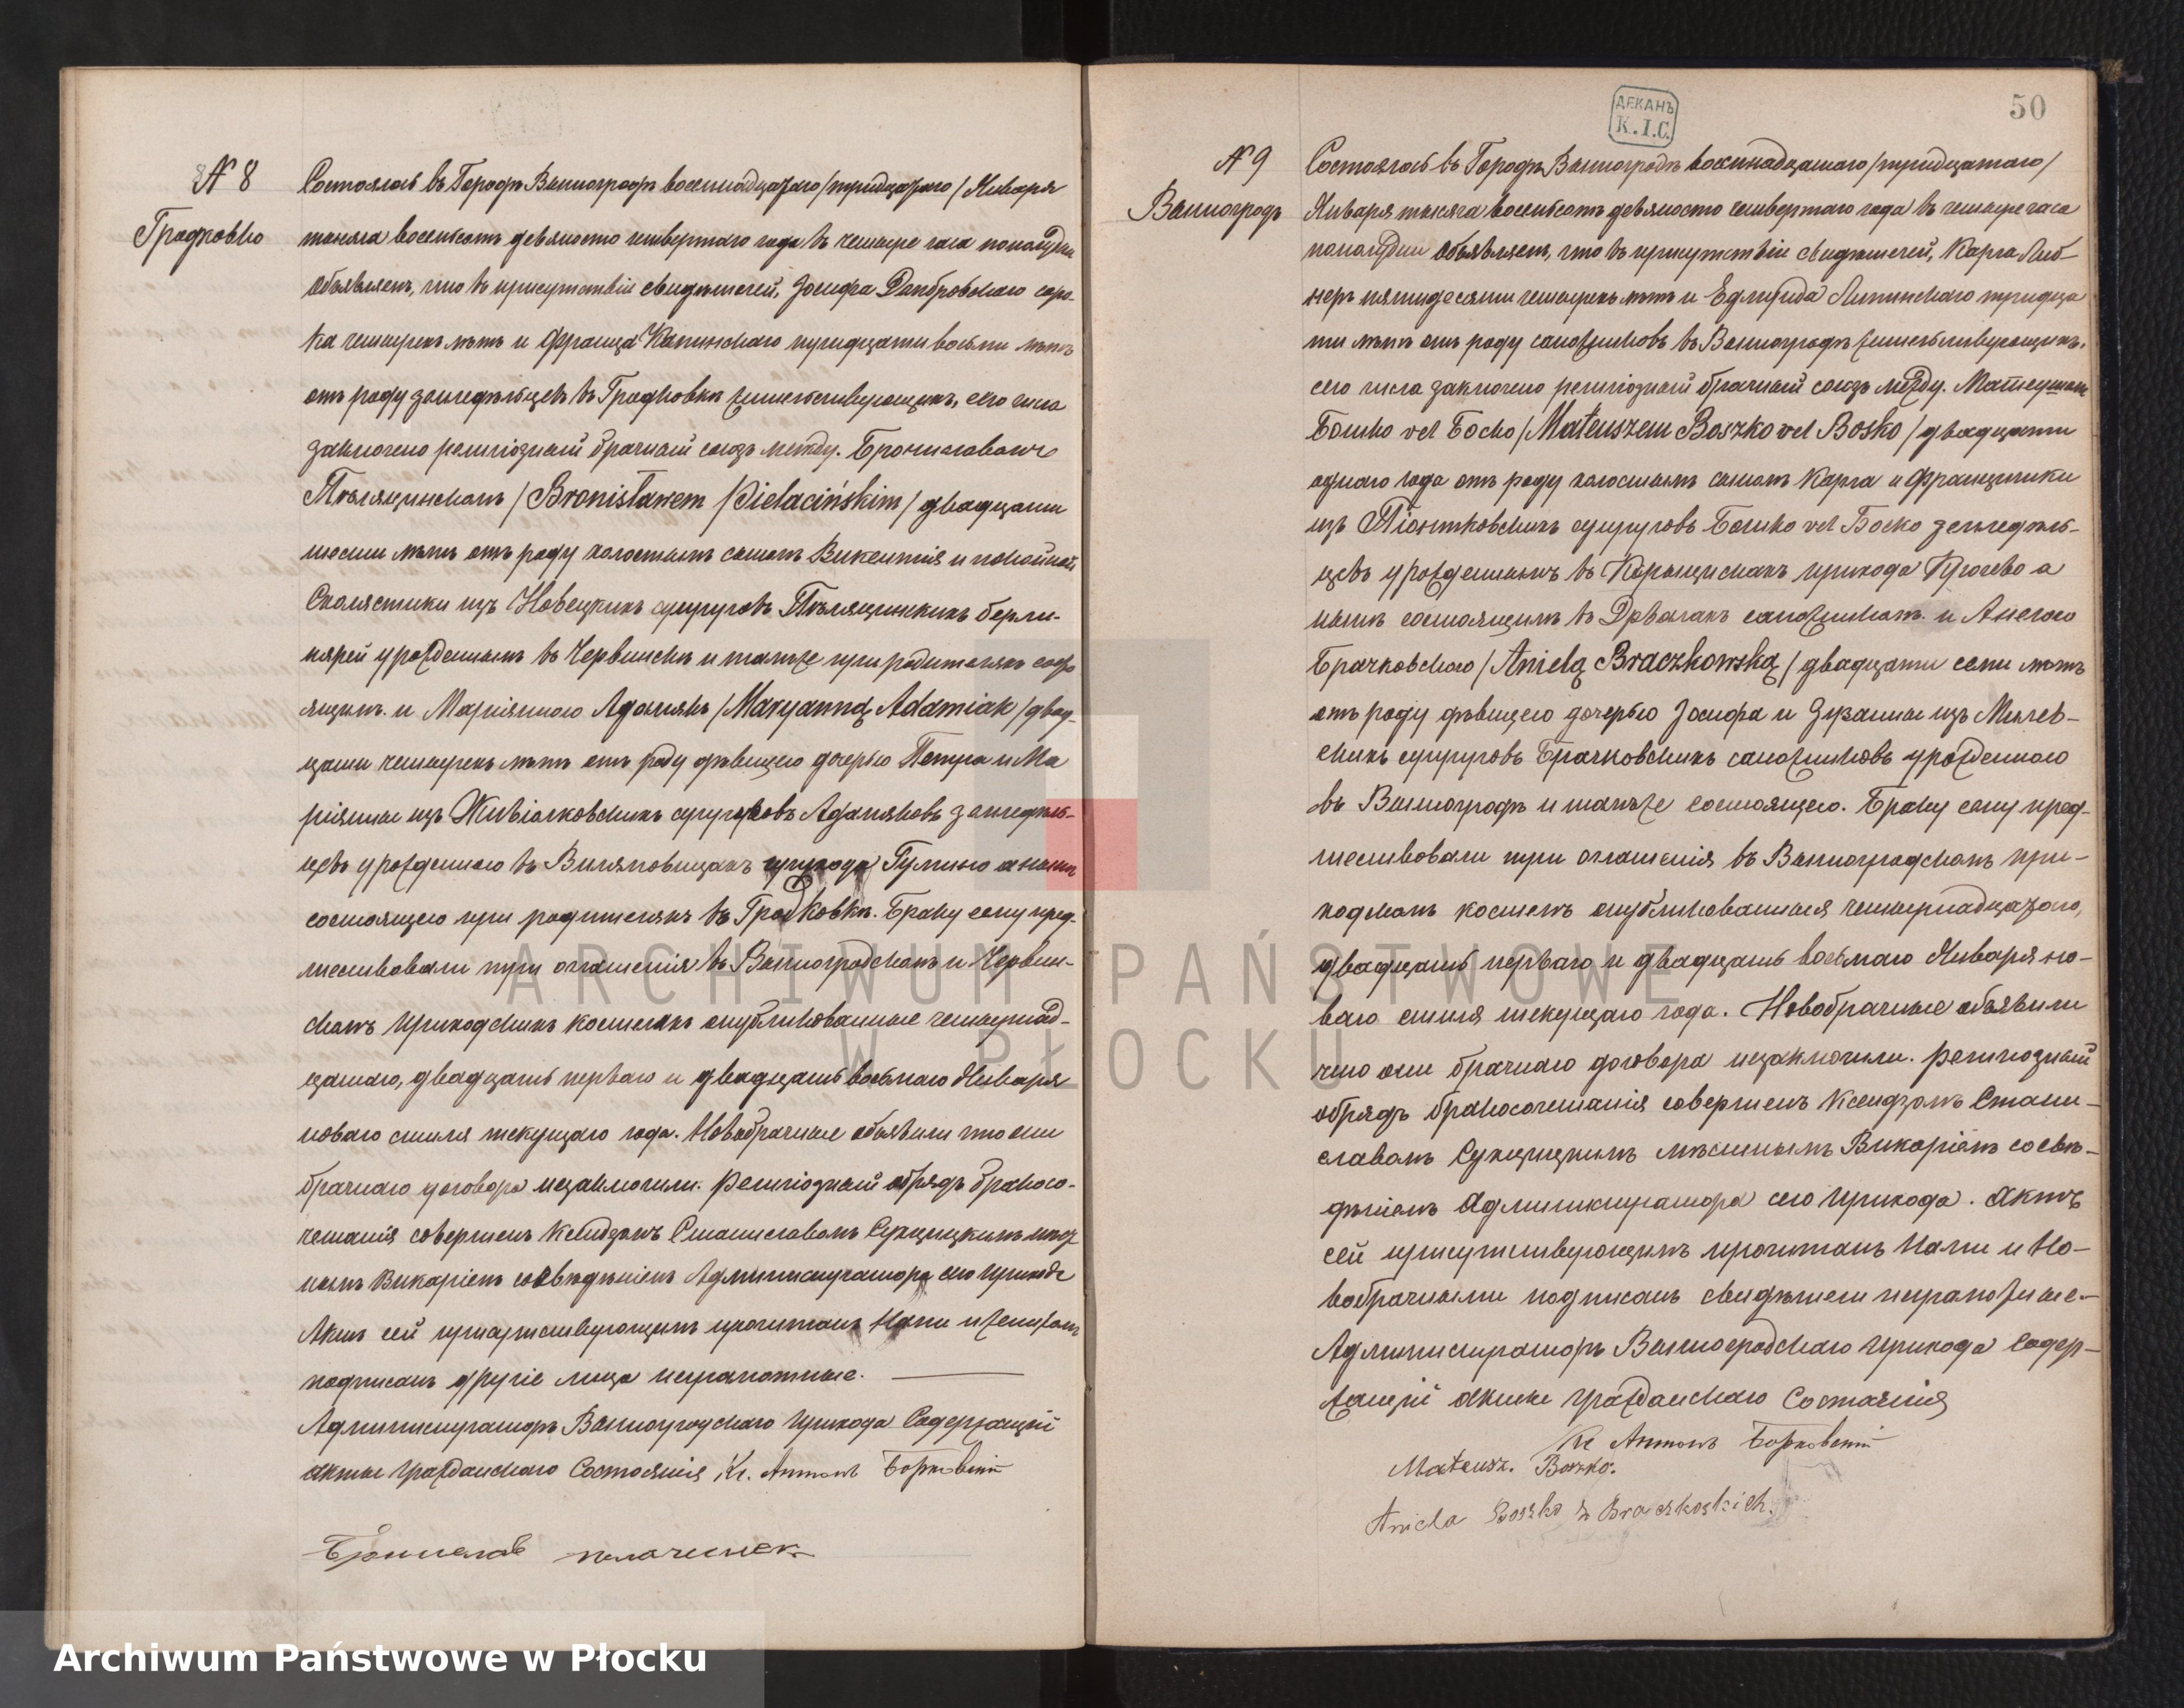 № 8
Градковко
Состоялось въ Городѣ Вышогродѣ восемнадцатаго /тридцатаго/ Января
тысяча восемьсотъ девяносто четвертаго года въ четыре часа пополудни
Объявляемъ, что въ присутствіи свидѣтелей, Іосифа Домбровскаго соро-
ка четырехъ лѣтъ и Франца Капинскаго тридцати восьми лѣтъ
отъ роду земледѣльцевъ въ Градковкѣ жительствующихъ, сего числа
заключенъ религіозный брачный союзъ между. Брониславомъ
Пѣляцинскимъ /Bronisławem Pielacińskim/ двадцати
шести лѣтъ отъ роду холостымъ сыномъ Викентія и покойной
Схолястики изъ Новецкихъ супруговъ Пѣляцинскихъ
урожденнымъ въ Червинскѣ и тамъже при родителяхъ состо
ящимъ. и Маріянною Адамякъ /Maryanną Adamiak/ двад-
цати четырехъ лѣтъ отъ роду дѣвицею дочерью Петра и Ма
ріянны изъ супруговъ Адамяковъ земледѣль-
цевъ урожденною въ прихода Гумино а нынѣ
состоящею при родителяхъ въ Градковкѣ. Браку сему пред-
шествовали три оглашенія въ Вышогродскомъ и Червин-
скомъ приходскихъ костелахъ опубликованные четырнад-
цатаго, двадцать перваго и двадцать восьмаго Января
новаго стиля текущаго года. Новобрачные объявили что они
брачнаго договора незаключили. Религіозный обрядъ бракосо-
четанія совершенъ Ксендзомъ Станиславомъ Сухцицкимъ мѣст
нымъ Викаріемъ совѣдѣніемъ Администратора сего прихода
Актъ сей присутствующимъ прочитанъ Нами и женихомъ
подписанъ другіе лица неграмотные.
Администраторъ Вышогродскаго прихода Содержащій
акты гражданскаго Состоянія Кс. Антонъ Борковскій
Брониславъ
ДЕКАНЪ
К.І.С.
50
№ 9
Вышогродъ
Состоялось въ Городѣ Вышогродѣ восемнадцатаго /тридцатаго/
Января тысяча восемьсотъ девяносто четвертаго года въ четыре часа
пополудни Объявляемъ, что въ присутствіи свидѣтелей, Карла Либ-
неръ пятидесяти четырехъ лѣтъ и Липинскаго тридца
ти лѣтъ отъ роду сапожниковъ въ Вышогродѣ жительствующихъ,
сего числа заключенъ религіозный брачный союзъ между. Матеушомъ
Бошко vel Боско /Mateuszem Boszko vel Bosko/ двадцати
одного года отъ роду холостымъ сыномъ Карла и Францишки
изъ Піонтковскихъ супруговъ Бошко vel Боско земледѣль-
цевъ урожденнымъ въ прихода а
нынѣ состоящимъ въ сапожникомъ. и Анелею
Брачковскою /Anielą Braczkowską/ двадцати семи лѣтъ
отъ роду дѣвицею дочерью Іосифа и Зузанны изъ Милев-
скихъ супруговъ Брачковскихъ сапожниковъ урожденною
въ Вышогродѣ и тамъже состоящею. Браку сему пред-
шествовали три оглашенія въ Вышогродскомъ при-
ходскомъ костелѣ опубликованныя четырнадцатаго,
двадцать перваго и двадцать восьмаго Января но-
ваго стиля текущаго года. Новобрачные объявили
что они брачнаго договора незаключили. Религіозный
обрядъ бракосочетанія совершенъ Ксендзомъ Стани-
славомъ Сухцицкимъ мѣстнымъ Викаріемъ со свѣ-
дѣніемъ Администратора сего прихода. Актъ
сей присутствующимъ прочитанъ Нами и Но-
вобрачными подписанъ свидѣтели неграмотные-
Администраторъ Вышогродскаго прихода Содер-
жащій акты гражданскаго Состоянія
Кс Антонъ Борковскій
Mateusz. Boszko.
Aniela Boszko z Braczkoskich.
ARCHIWUM PAŃSTWOWE
W PŁOCKU
Archiwum Państwowe w Płocku